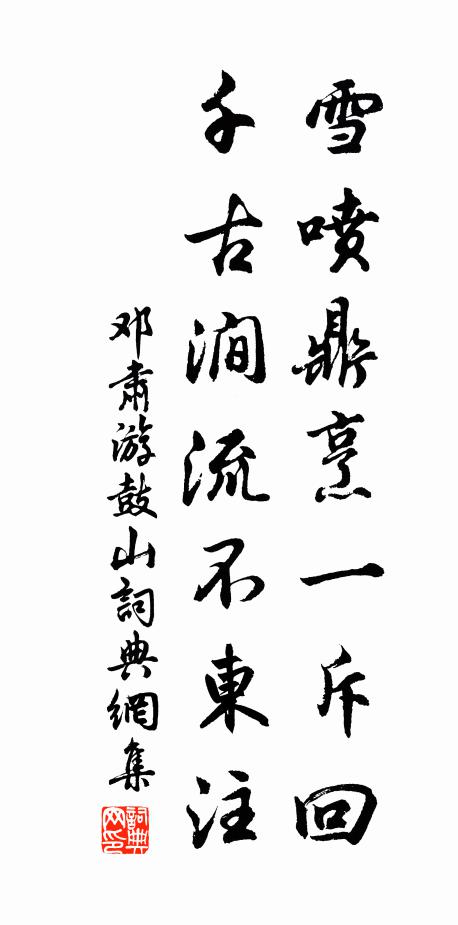 雪噴鼎烹一斥回
千古澗流不東注
邓肅游鼓山詞典網集
詞典网印